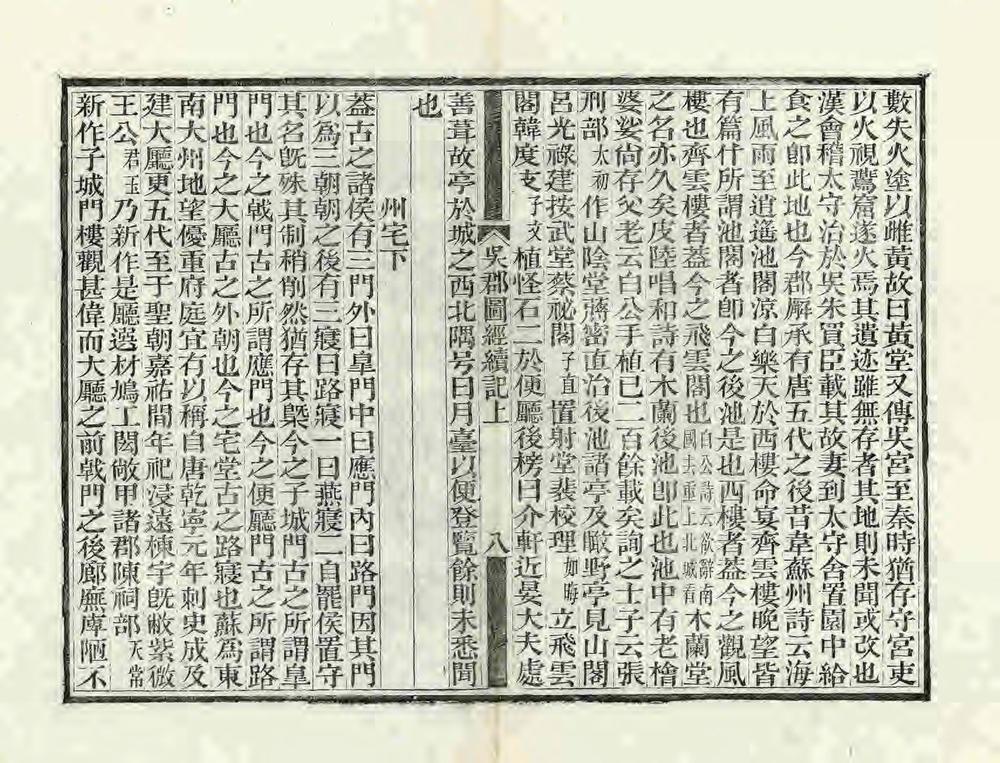 數失火塗以雌黃故曰黃堂又傳吳宮至秦時猶存守宮吏
以火視鷰窟遂火焉其遺迹雖無存者其地則未聞或改也
漢會稽太守治於吳朱買臣載其故妻到太守舍置園中給
食之卽此地也今郡廨承有唐五代之後昔韋蘇州詩云海
上風雨至逍遙池閣涼白樂天於西樓命宴齊雲樓晚望皆
有篇什所謂池閣者卽今之後池是也西樓者葢今之觀風
樓也齊雲樓者葢今之飛雲閣也白公詩云欲辭南國去重上北城看木蘭堂
之名亦久矣皮陸唱和詩有木蘭後池卽此也池中有老檜
婆娑尙存父老云白公手植已二百餘載矣詢之士子云張
刑部太初作山陰堂蔣密直治後池諸亭及瞰野亭見山閣
呂光祿建按武堂蔡祕閣子直置射堂裴校理如晦立飛雲
閣韓度支子文植怪石二於便廳後榜曰介軒近晏大夫處
吳郡圖經續記上 八
善葺故亭於城之西北隅号曰月臺以便登覽餘則未悉聞
也
州宅下
葢古之諸侯有三門外曰臯門中曰應門內曰路門因其門
以爲三朝朝之後有三寢曰路寢一曰燕寢二自罷侯置守
其名旣殊其制稍削然猶存其槩今之子城門古之所謂臯
門也今之戟門古之所謂應門也今之便廳門古之所謂路
門也今之大廳古之外朝也今之宅堂古之路寢也蘇爲東
南大州地望優重府庭宜有以稱自唐乾寧元年刺史成及
建大廳更五代至于聖朝嘉祐間年祀浸遠棟宇旣敝紫微
王公君玉乃新作是廳選材鳩工閎敞甲諸郡陳祠部天常
新作子城門樓觀甚偉而大廳之前戟門之後廊廡庳陋不